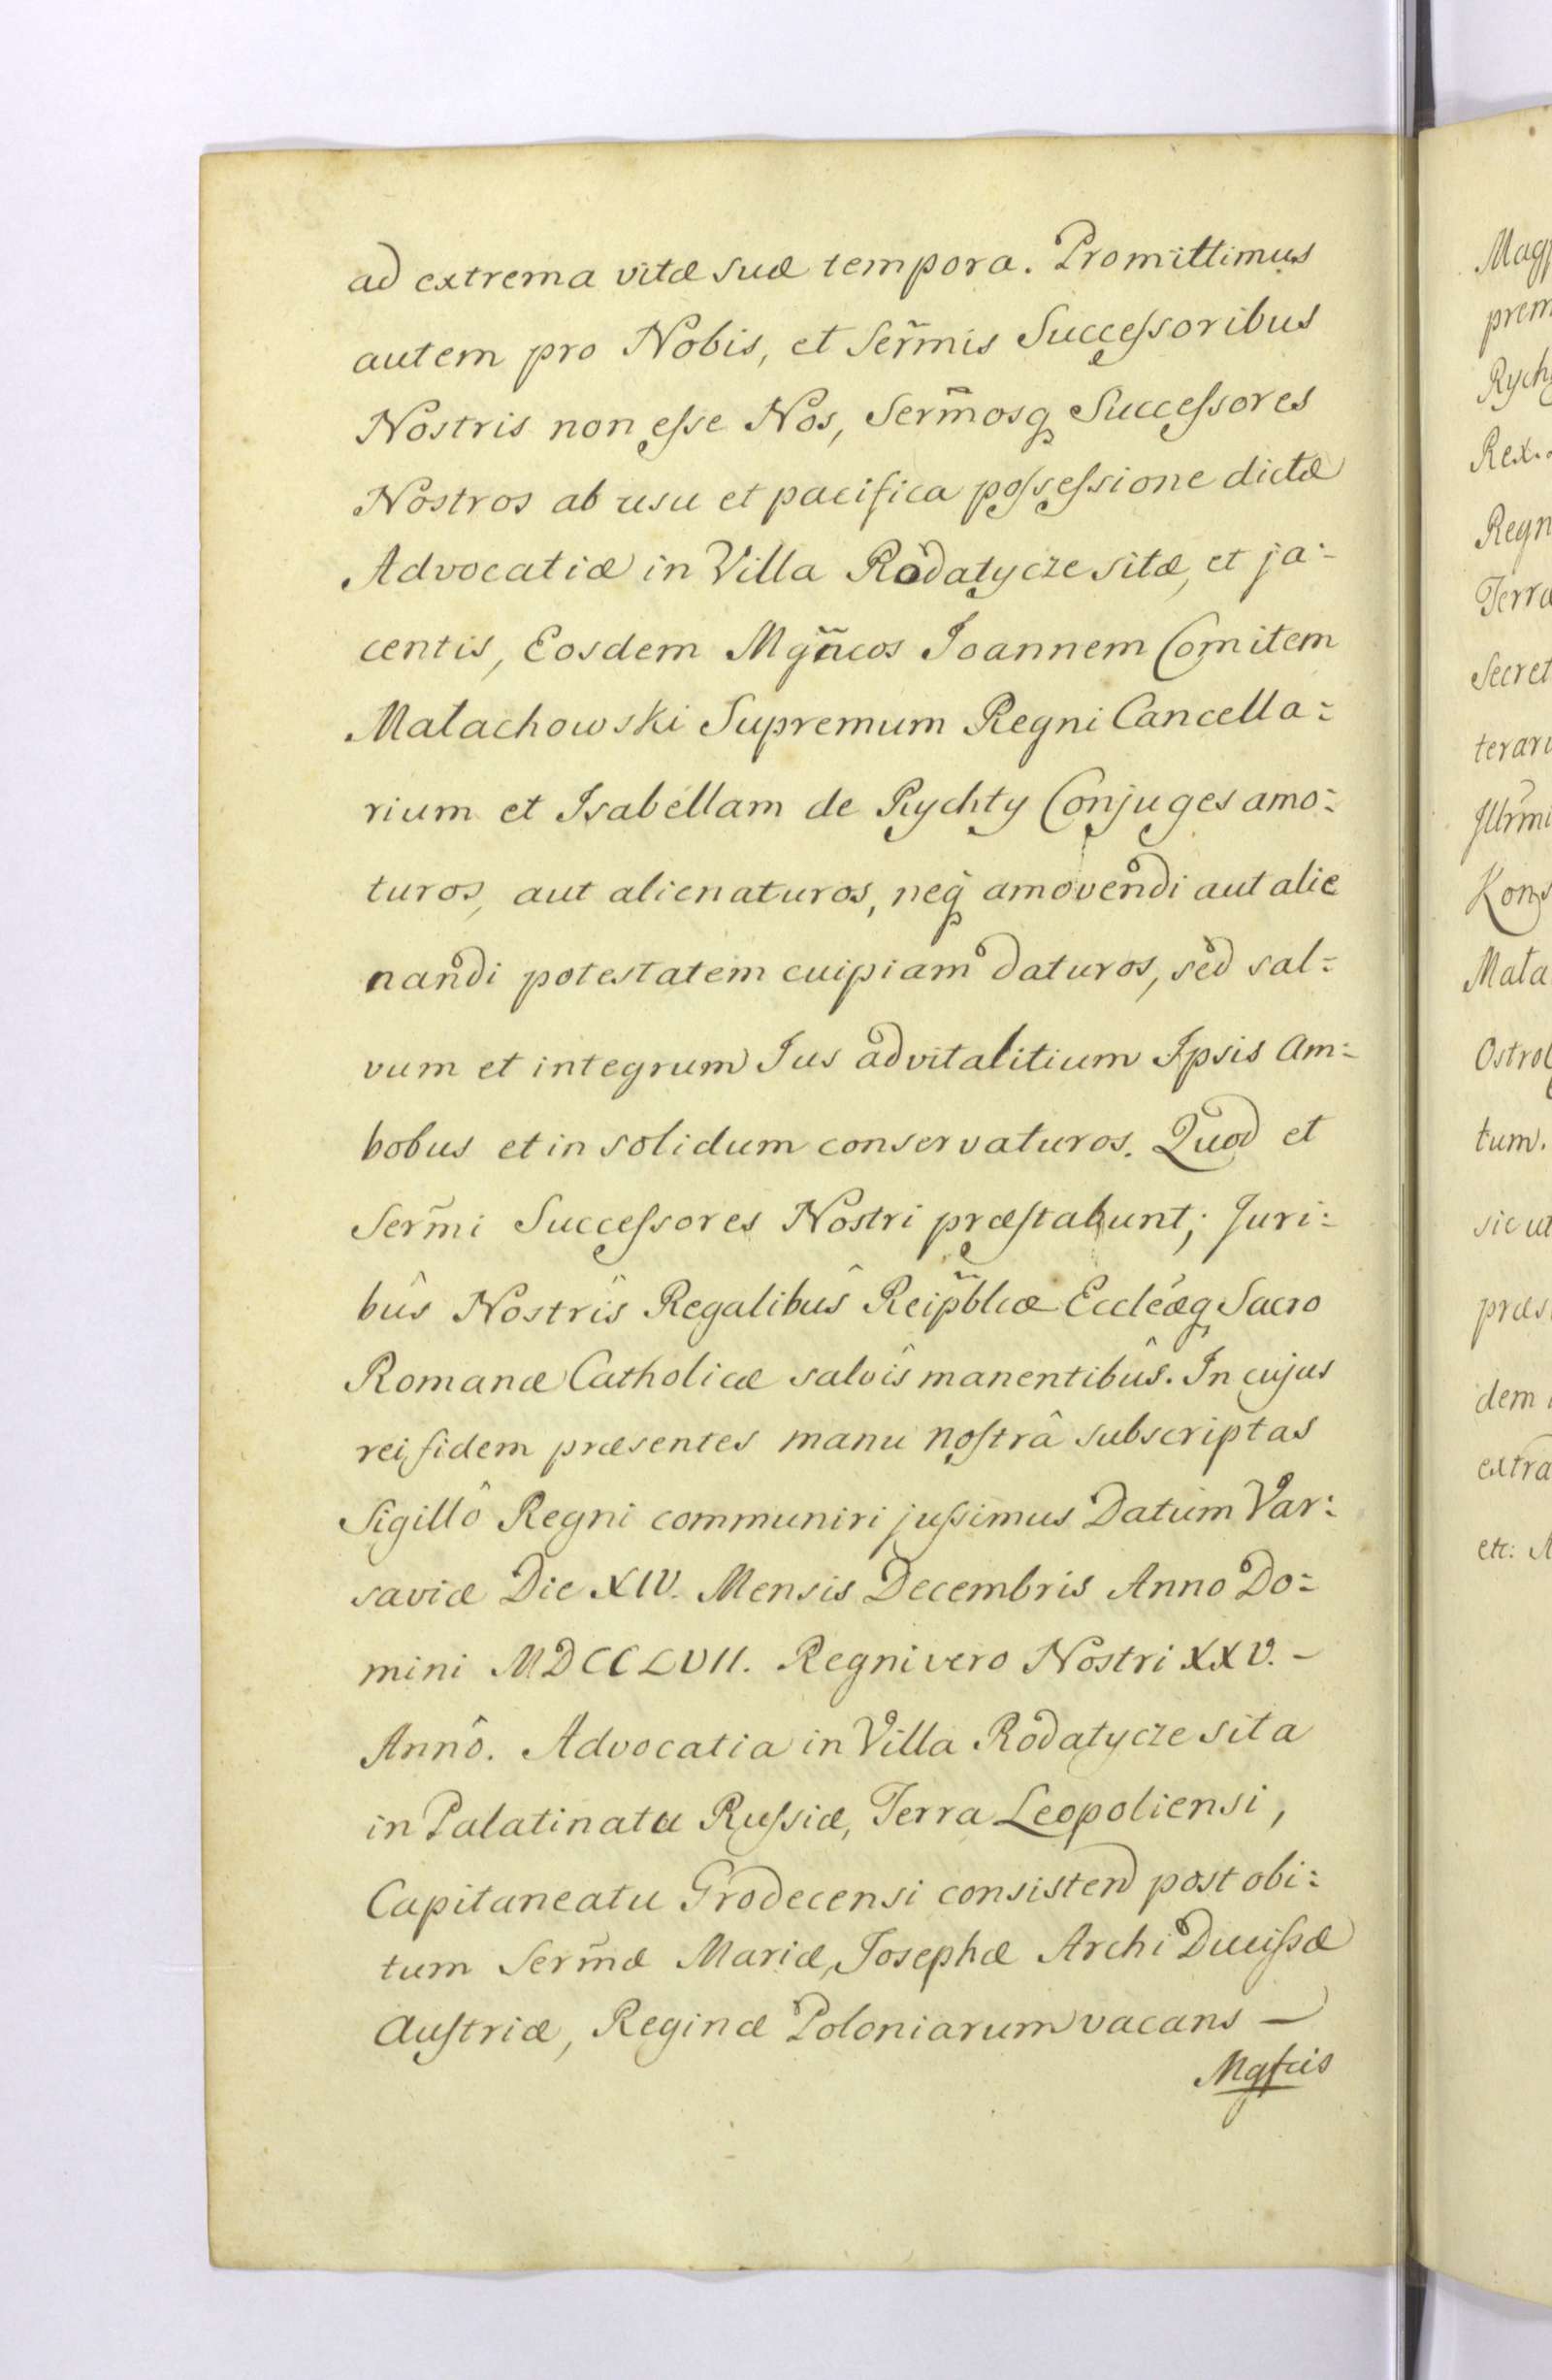 ad extrema vitæ suæ tempora. Promittimus
autem pro Nobis, et Ser̃mis Succeſsoribus
Nostris non eſse Nos, Ser̃mosq Succeſsores
Nostros ab usu et pacifica poſseſsione dictæ
Advocatiæ in Villa Rodatycze sitæ, et ja:
centis, Eosdem Mgñcos Joannem Comitem
Małachowski Supremum Regni Cancella:
rium et Isabellam de Rychty Conjuges amo:
turos, aut alienaturos, neq amovendi aut alie
nandi potestatem cuipiam daturos, sed sal:
vum et integrum Jus advitalitium Ipsis Am:
bobus et in solidum conservaturos. Quod et
Ser̃mi Succeſsores Nostri præſtabunt; Juri:
bûs Nostrîs Regalibûs Reip̃blicæ Ecclẽæq Sacro
Romanæ Catholicæ salvîs manentibûs. In cujus
rei fidem præsentes manu noſtrâ subscriptas
Sigillô Regni communiri juſsimus Datum Var:
saviæ Die XIV. Mensis Decembris Anno Do:
mini MDCCLVII. Regni vero Nostri XXV. -
Annô. Advocatia in Villa Rodatycze sita
in Palatinatu Ruſsiæ, Terra Leopoliensi,
Capitaneatu Grodecensi consisten post obi:
tum Ser̃mæ Mariæ, Josephæ Archi Duciſsæ
Auſtriæ, Reginæ Poloniarum vacans —
Mgfcis
Mag
prem
Rych
Rex.
Regn
Terra
Secret
terari
Jllr̃mi
Kons
Mała
Ostro
tum.
sic ut
præs
dem
extra
etc: A